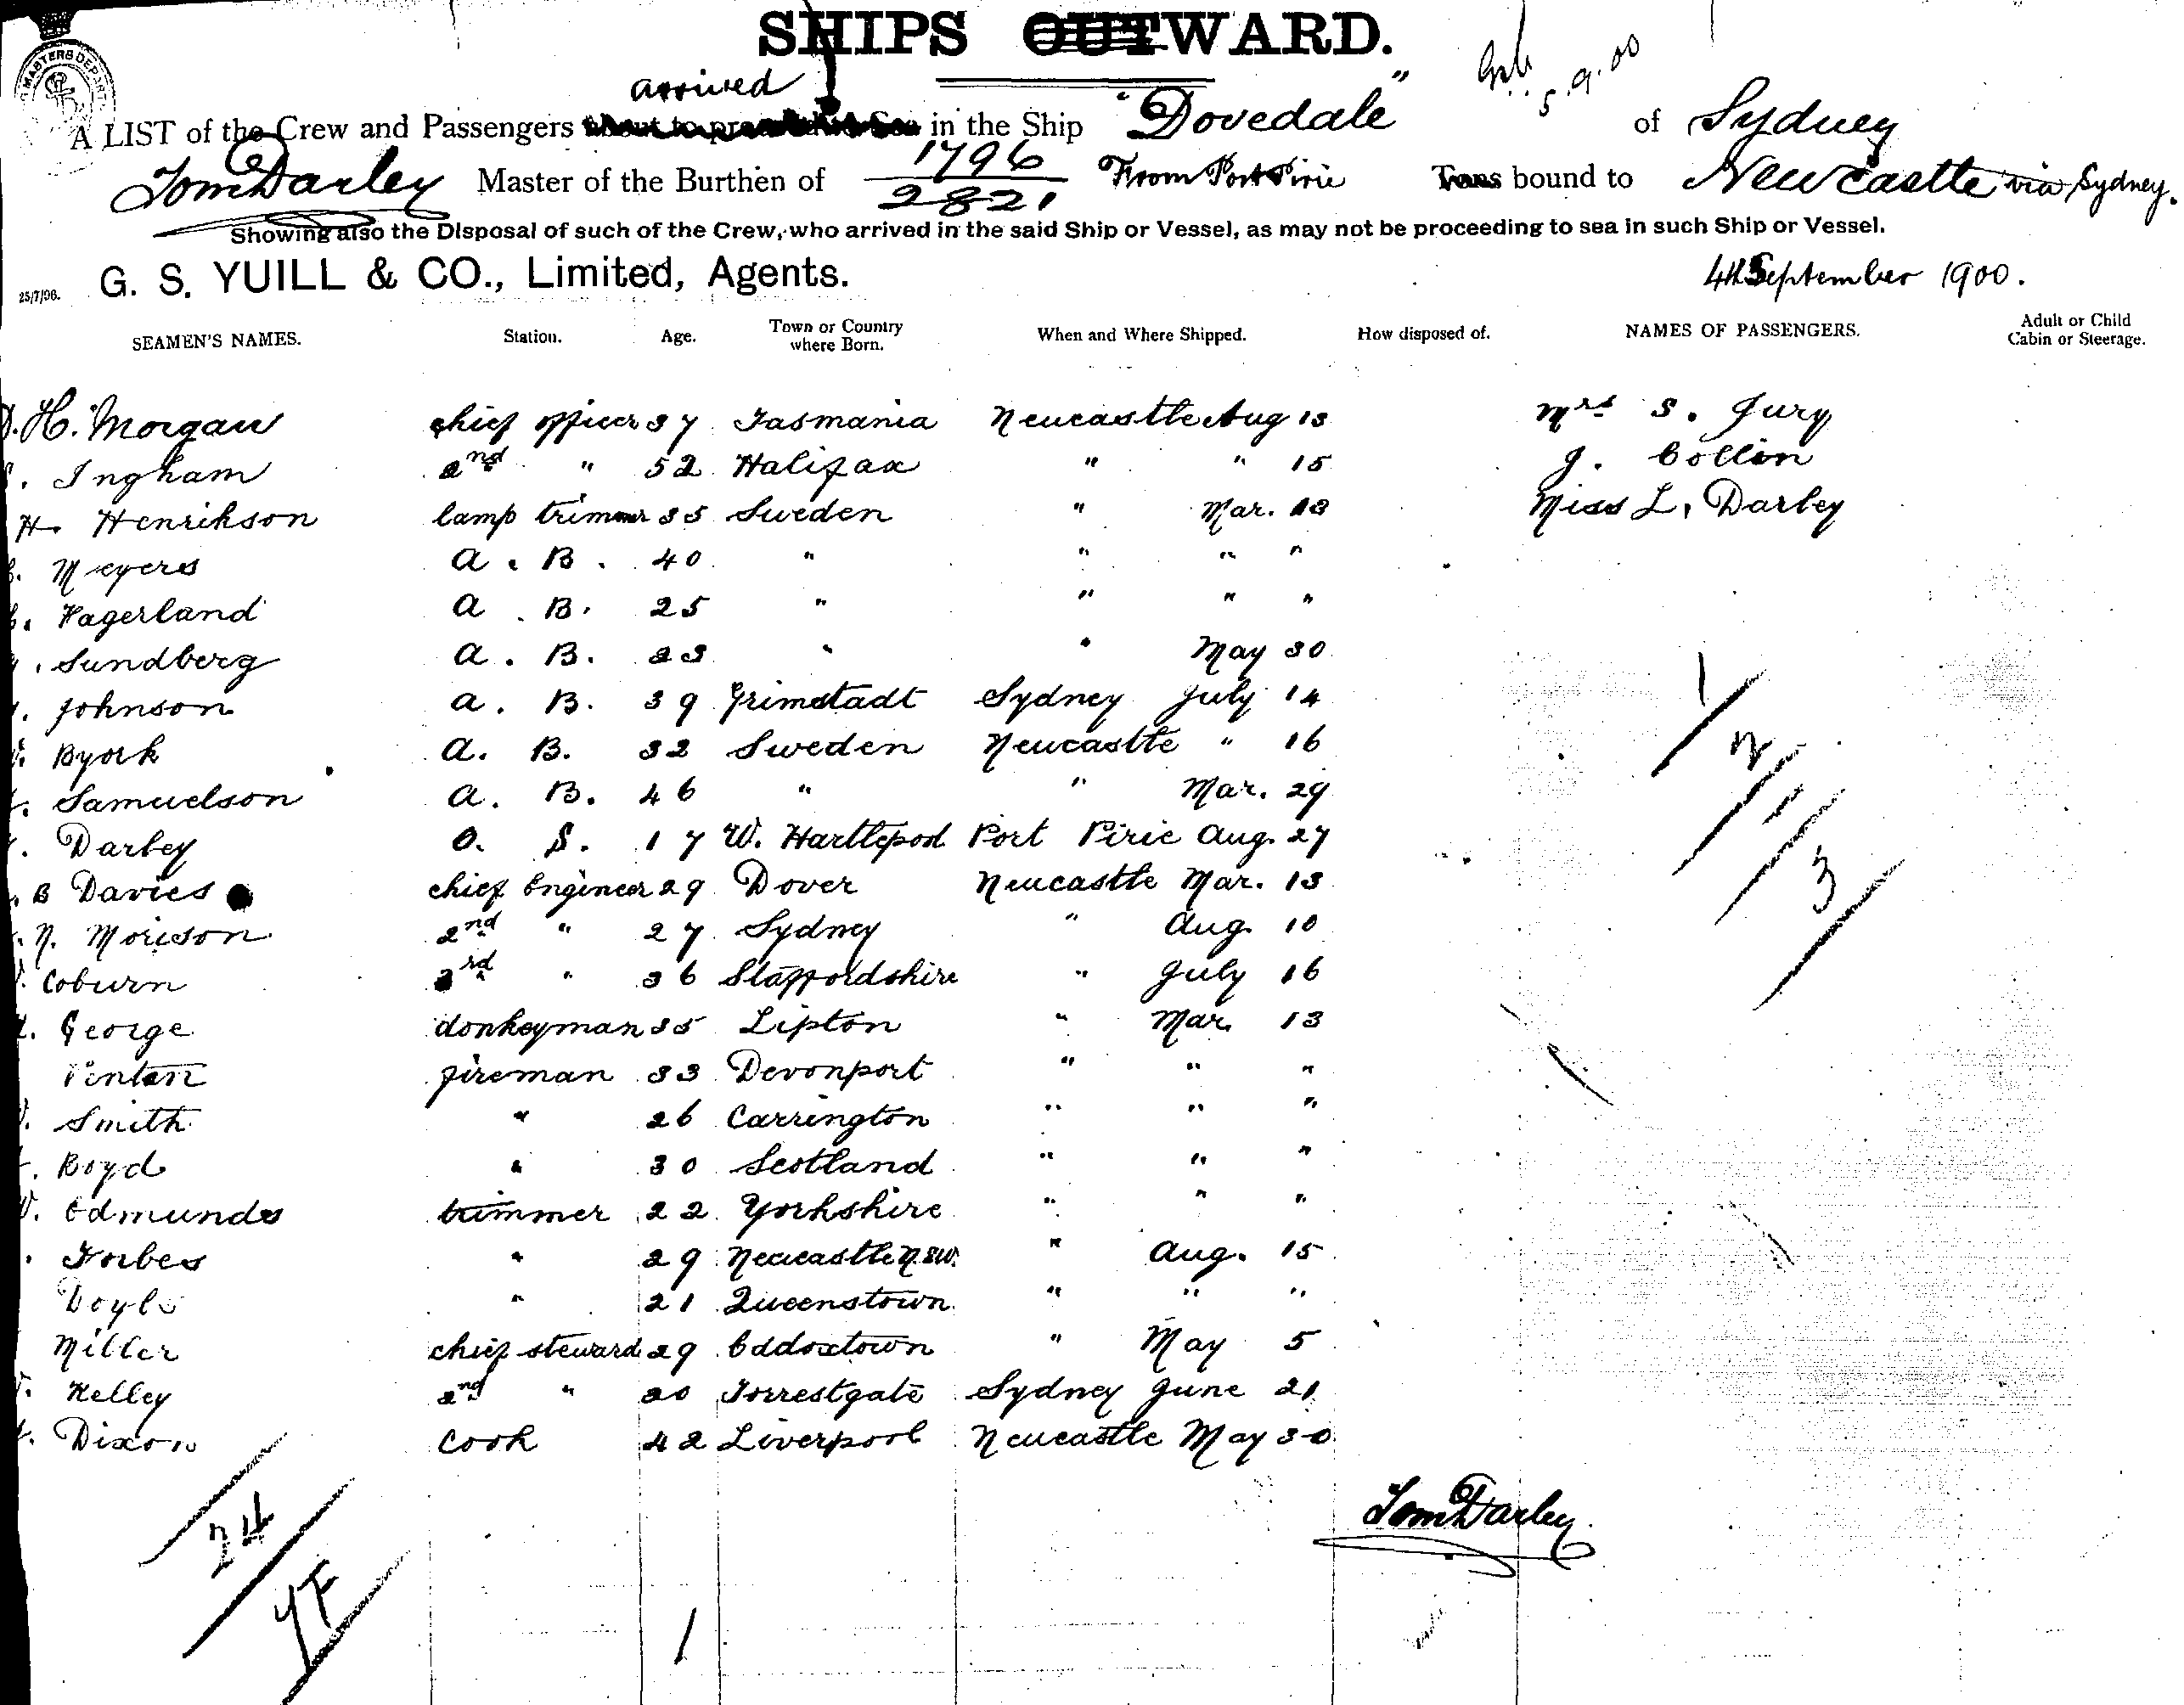 SHIPS OUTWARD.
arrived
5.9.00
A LIST of the Crew and Passengers about to proceed to Sea in the Ship "Dovedale" of Sydney
Tom Darley Master of the Burthen of 1796 / 2821 From Port Pirie Tons bound to Newcastle via Sydney.
Showing also the Disposal of such of the Crew, who arrived in the said Ship or Vessel, as may not be proceeding to sea in such Ship or Vessel.
25/7/96. G. S. YUILL & CO., Limited, Agents. 4th September 1900.
SEAMEN'S NAMES. Station. Age. Town or Country where Born. When and Where Shipped. How disposed of. NAMES OF PASSENGERS. Adult or Child Cabin or Steerage.
H. Morgan chief officer 37 Tasmania Newcastle Aug 13 Mrs S. Jury
Ingham 2nd " 52 Halifax " " 15 J. Collin
H. Henrikson lamp trimmer 35 Sweden " Mar. 13 Miss L. Darley
Meyers A. B. 40 " " " "
Hagerland A. B. 25 " " " "
Sundberg A. B. 23 " " May 30
Johnson A. B. 39 Grimstadt Sydney July 14
Byork A. B. 32 Sweden Newcastle " 16
Samuelson A. B. 46 " " Mar. 29
Darley O. S. 17 W. Hartlepool Port Pirie Aug. 27
B Davies chief Engineer 29 Dover Newcastle Mar. 13
N. Morison 2nd " 27 Sydney " Aug. 10
Coburn 3rd " 36 Staffordshire " July 16
George donkeyman 35 Lipton " Mar. 13
Penten fireman 33 Devonport " " "
Smith " 26 Carrington " " "
Boyd " 30 Scotland " " "
Edmunds trimmer 22 Yorkshire " " "
Forbes " 29 Newcastle N.SW. " Aug. 15
Doyle " 21 Queenstown " " "
Miller chief steward 29 Eddoxtown " May 5
Kelley 2nd " 20 Forrestgate Sydney June 21
Dixon Cook 42 Liverpool Newcastle May 30
Tom Darley
24
1
2
3
1